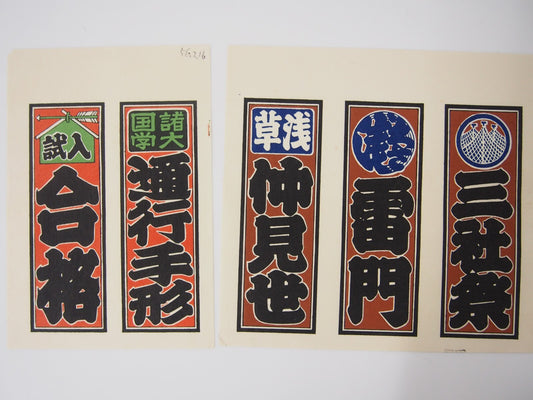 三社祭
雷門
浅草
仲見世
諸国
大学
通行手形
入試
合格